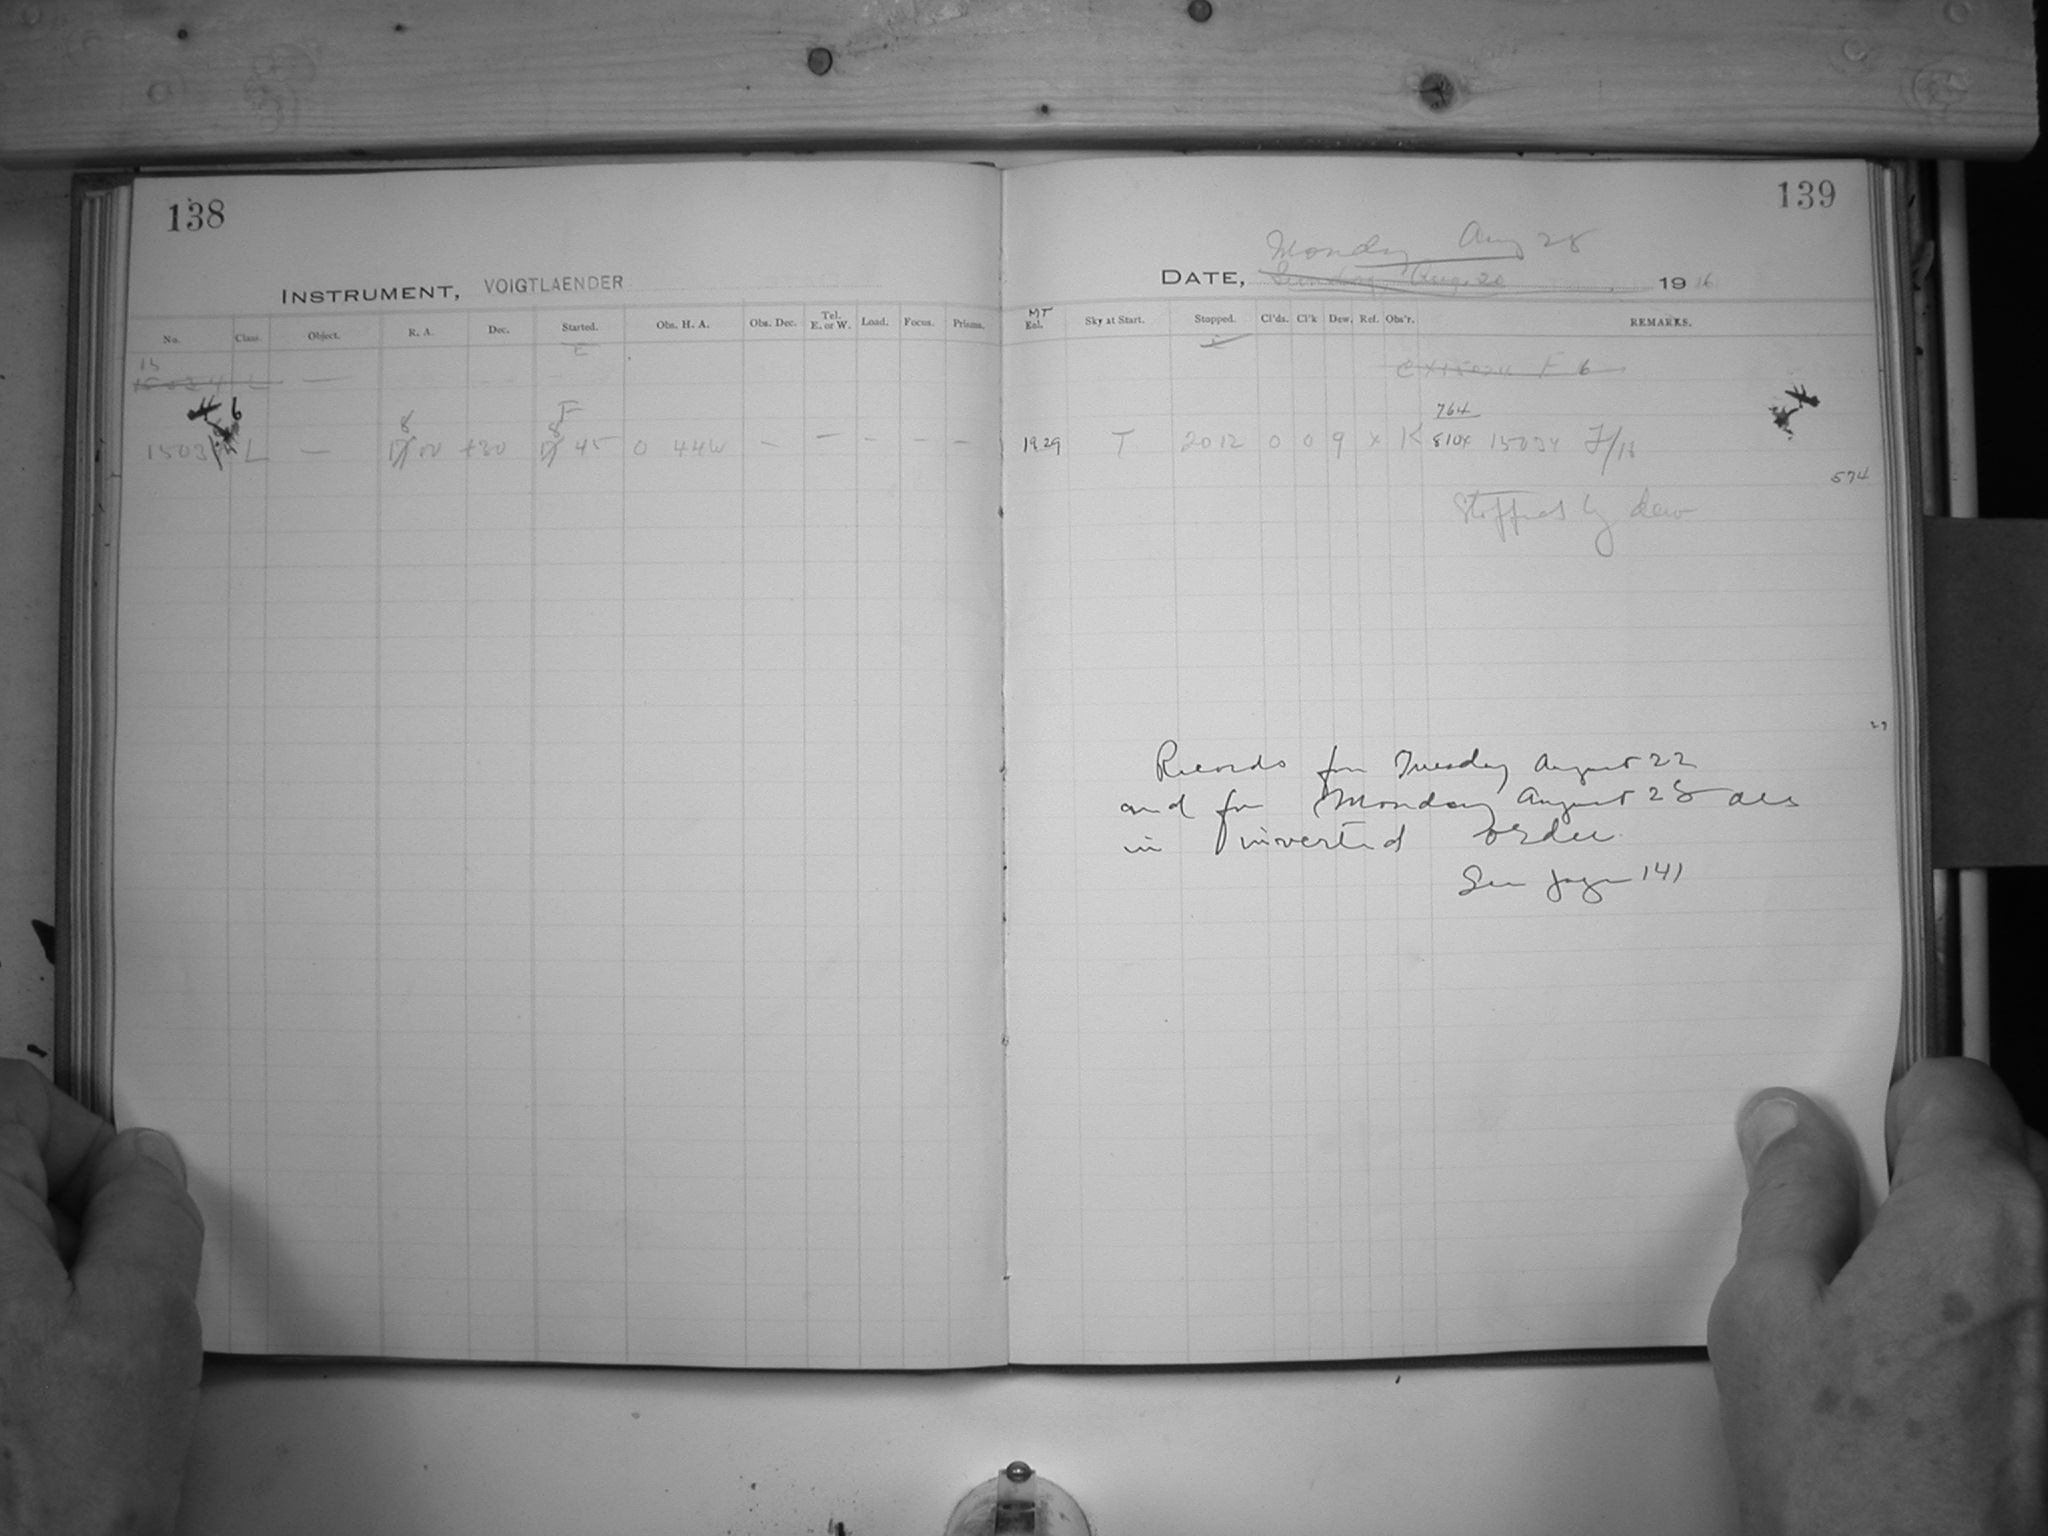 138
INSTRUMENT, VOIGTLAENDER
No. Class. Object. R. A. Dec. Started. Obs. H. A. Obs. Dec. Tel. E. or W. Load. Focus. Prisms.
E
15
15024 L —
6
8 F 8
1503 L — 00 +30 45 0 44W — — - - —
139
Monday Aug 28
DATE, Sunday Aug. 20 1916
MT
Eal. Sky at Start. Stopped. Cl'ds. Cl'k Dew. Ref. Obs'r. REMARKS.
CX15024 F 6
764
1929 T 2012 0 0 9 x K 810x 15034 F/18
574
Stopped by dew
29
Records for Tuesday August 22
and for Monday August 28 are
in inverted order.
See page 141